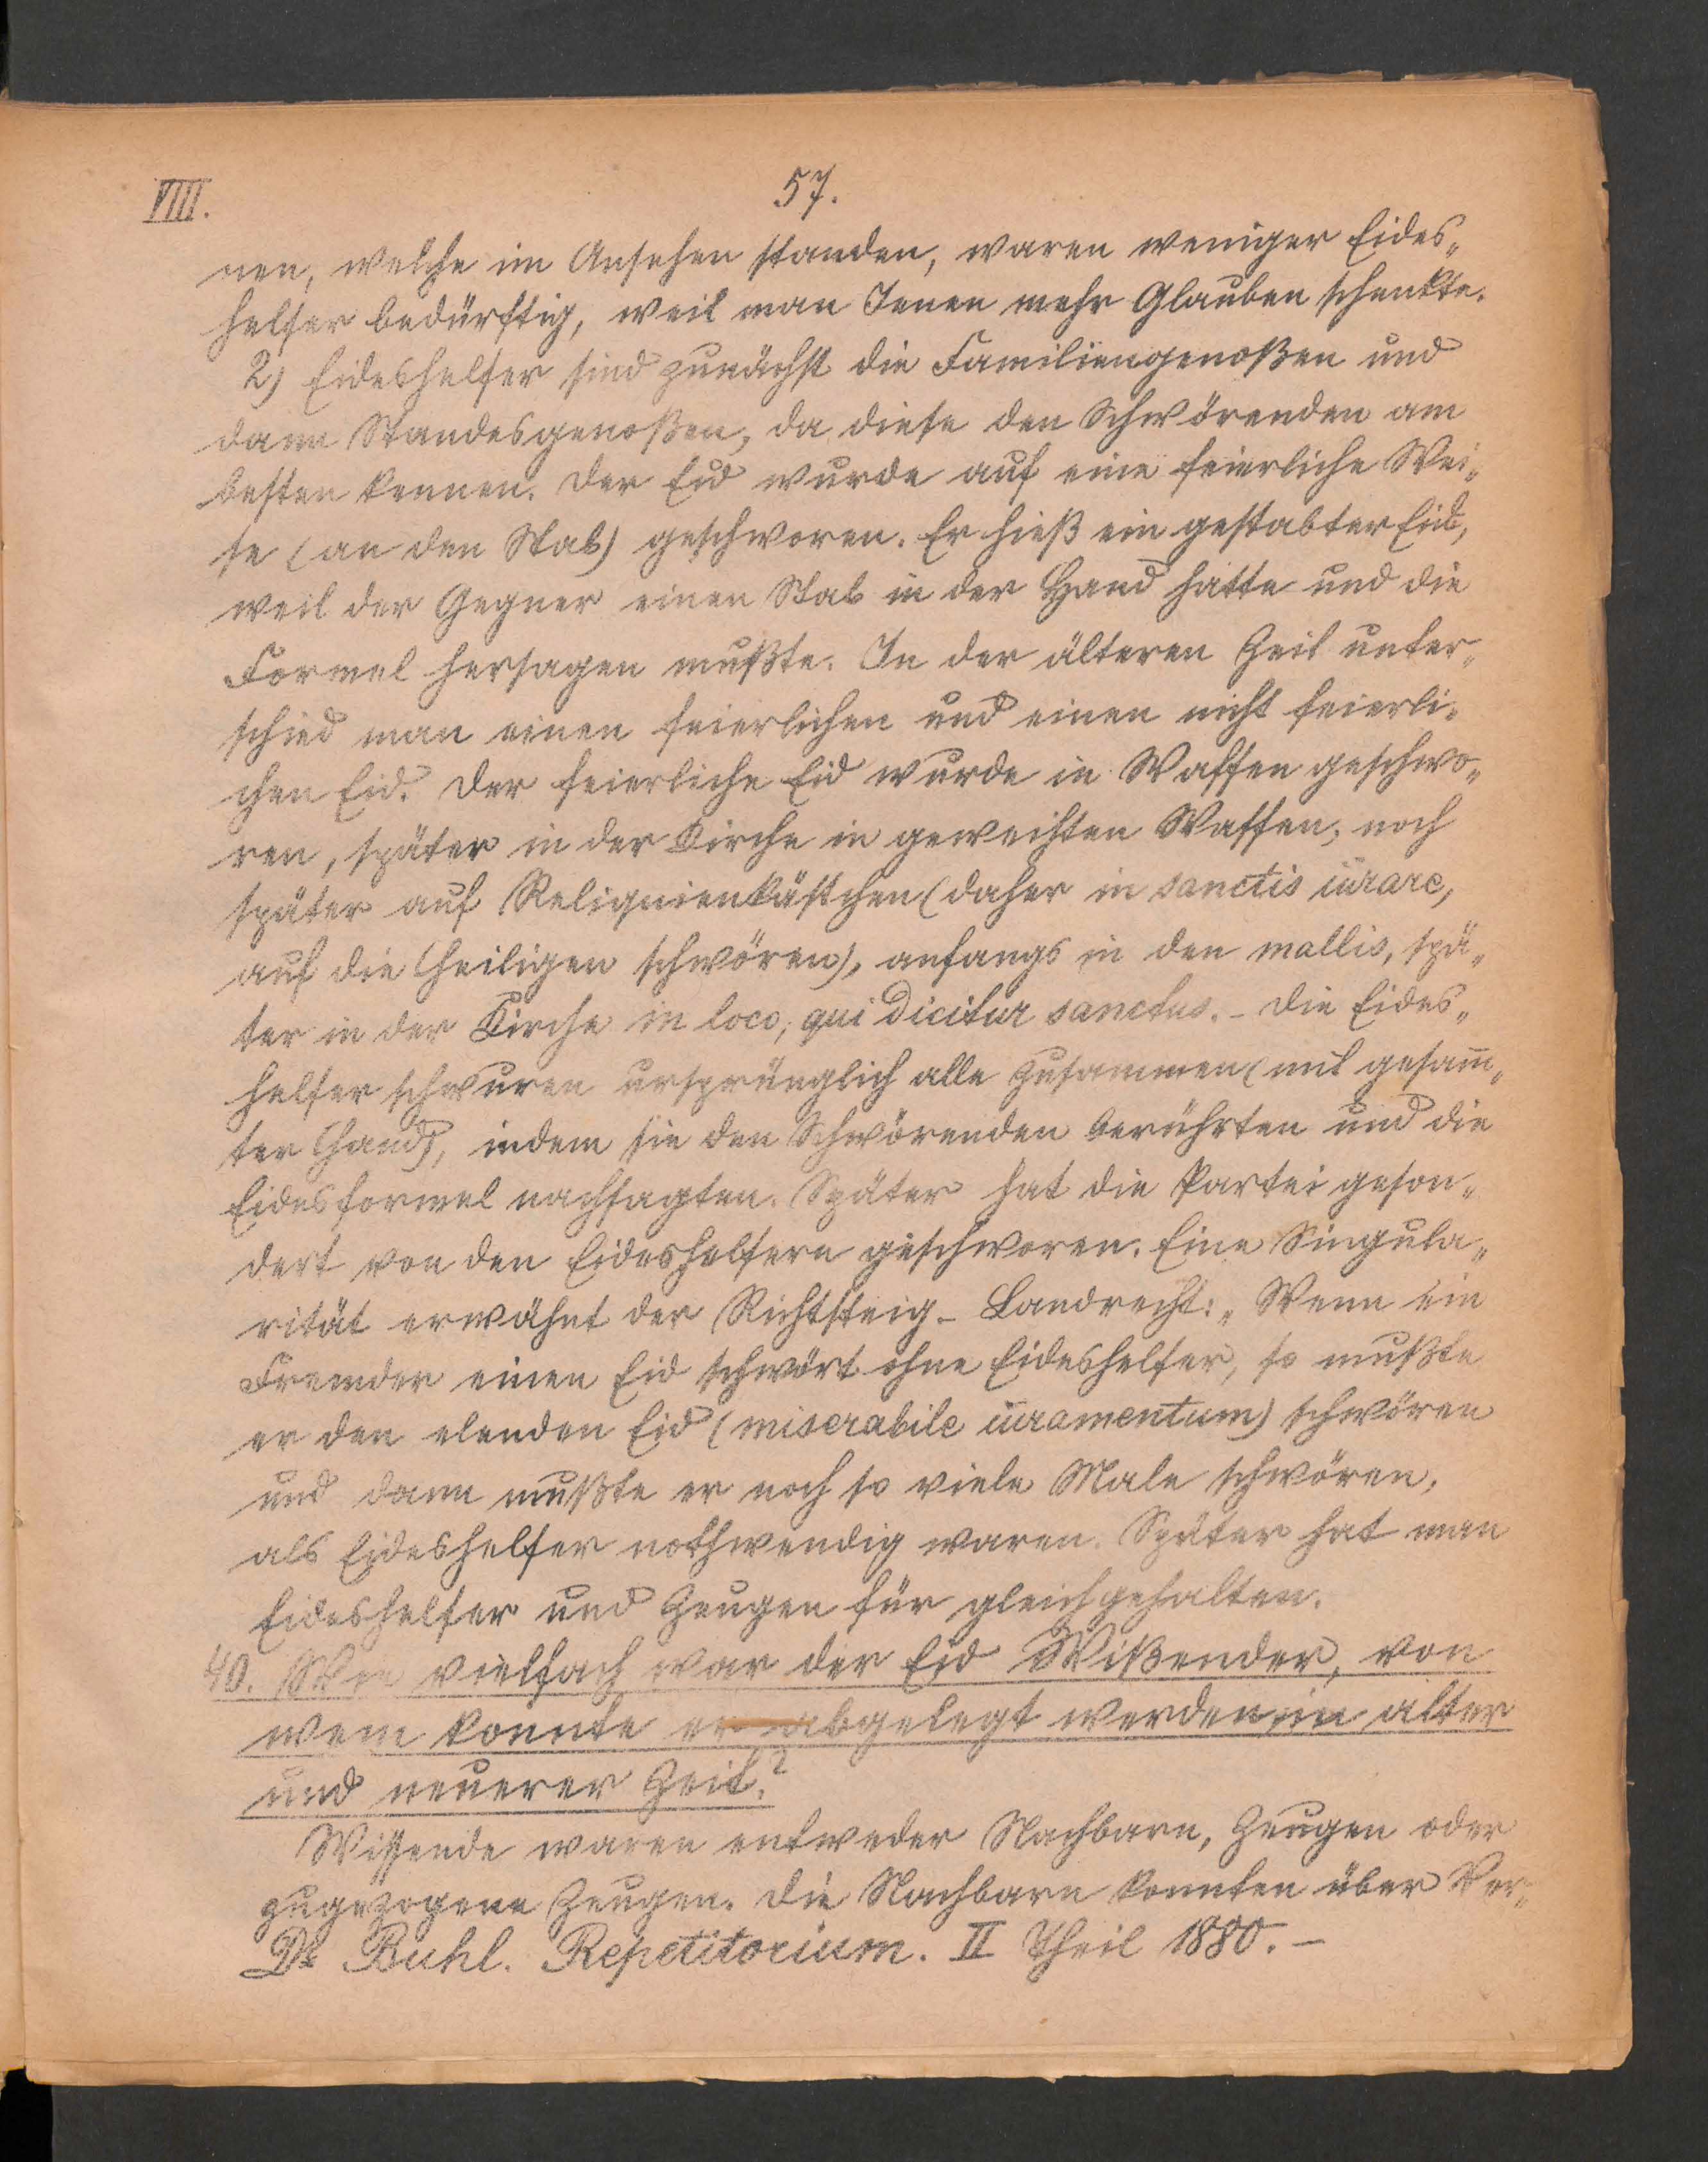 VIII.
57.
nen, welche im Ansehen standen, waren weniger Eides„
helfer bedürftig, weil man Jenen mehr Glauben schenkte.
2) Eideshelfer sind zunächst die Familiengenoßen und
dann Standesgenoßen, da diese den Schwörenden am
besten kennen. Der Eid wurde auf eine feierliche Wei„
se (an den Stab) geschworen. Er hieß ein gestabter Eid,
weil der Gegner einen Stab in der Hand hatte und die
Formel hersagen mußte. In der älteren Zeit unter„
schied man einen feierlichen und einen nicht feierli„
chen Eid. Der feierliche Eid wurde in Waffen geschwo„
ren, später in der Kirche in geweihten Waffen, noch
später auf Reliquienkästchen (daher in sanctis iurare,
auf die Heiligen schwören), anfangs in den mallis, spä„
ter in der Kirche in loco, qui dicitur sanctus. – Die Eides„
helfer schwuren ursprünglich alle zusammen (mit gesam̅„
ter Hand), indem sie den Schwörenden berührten und die
Eidesformel nachsagten. Später hat die Partei geson„
dert von den Eideshelfern geschworen. Eine Singula„
rität erwähnt der Richtsteig-Landrecht: „Wenn ein
Fremder einen Eid schwört ohne Eideshelfer, so mußte
er den elenden Eid (miserabile iuramentum) schwören
und dann mußte er noch so viele Male schwören,
als Eideshelfer nothwendig waren. Später hat man
Eideshelfer und Zeugen für gleich gehalten.
40. Wie vielfach war der Eid Wißender, von
wem konnte er abgelegt werden in alter
und neuerer Zeit?
Wissende waren entweder Nachbarn, Zeugen oder
zugezogene Zeugen. Die Nachbarn konnten über Ver„
Dr Buhl. Repetitorium. II Theil 1880. –